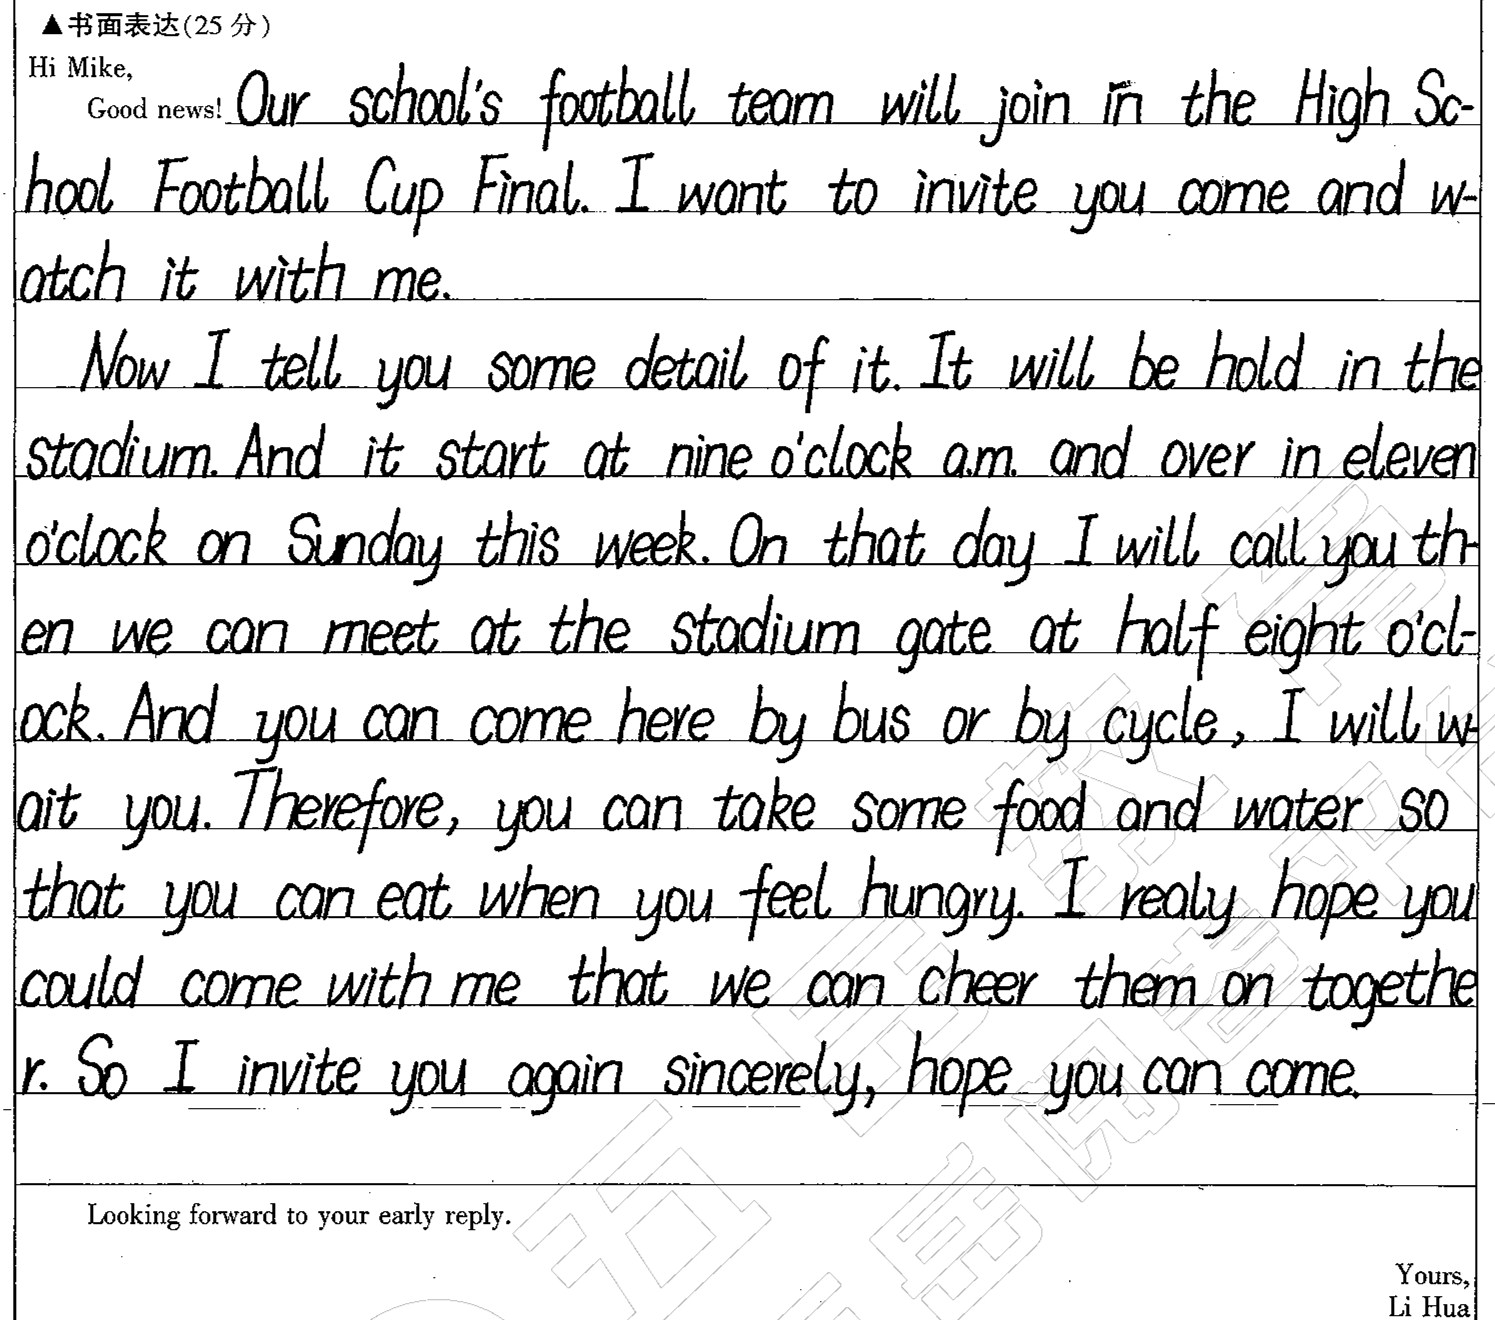 ▲书面表达(25分)
Hi Mike,
Good news! Our school's football team will join in the High Sc-
hool Football Cup Final. I want to invite you come and w-
atch it with me.
Now I tell you some detail of it. It will be hold in the
stadium. And it start at nine o'clock a.m. and over in eleven
o'clock on Sunday this week. On that day I will call you th-
en we can meet at the stadium gate at half eight o'cl-
ock. And you can come here by bus or by cycle, I will w-
ait you. Therefore, you can take some food and water so
that you can eat when you feel hungry. I realy hope you
could come with me that we can cheer them on togethe
r. So I invite you again sincerely, hope you can come.
Looking forward to your early reply.
Yours,
Li Hua